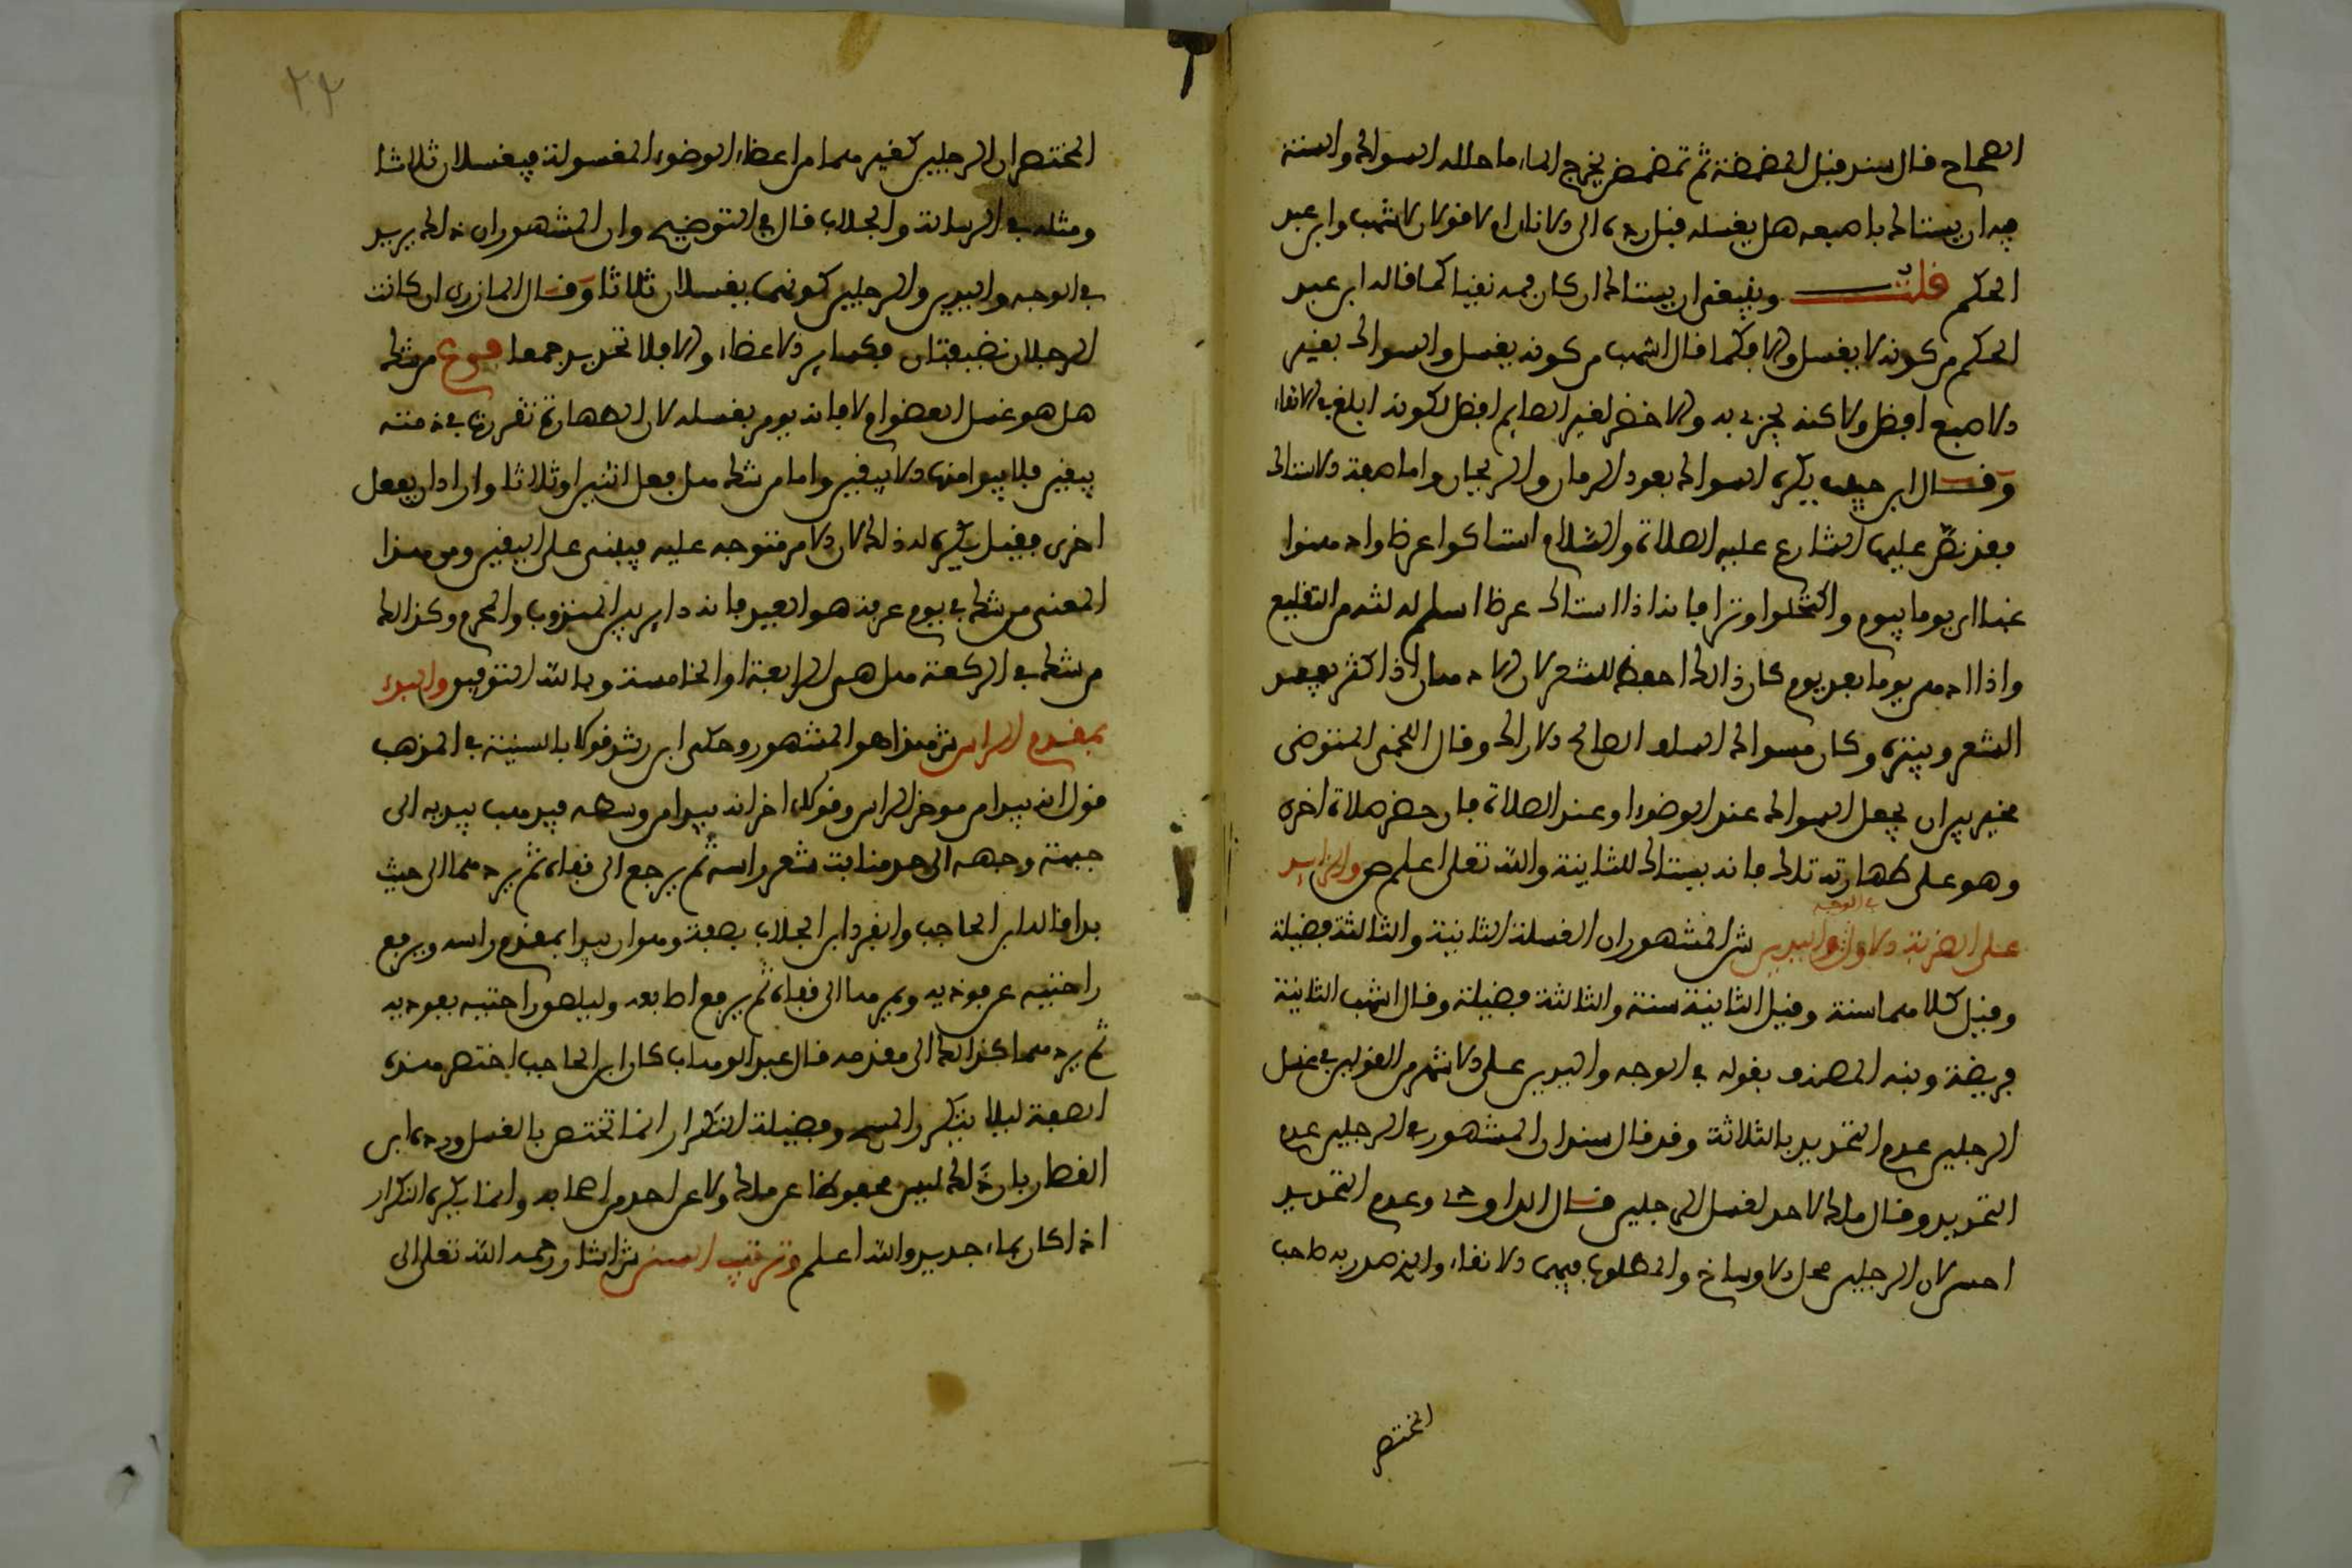 الصحاح قال سند قبل المضمضة ثم تمضمض يخرج الماء ما حلله السواك والسنة
فيه ان يستاك باصبعه هل يغسله قبل رده الى الاناء ام لا قولان لاشهب وابن عبد
الحكم قلت وينبغي ان يستاك ان كان فمه نقيا كما قاله ابن عبد
الحكم من كونه لا يغسل والا فكما قال اشهب من كونه يغسل والسواك بغير
الاصبع افضل ولاكنه يجزي به والاخضر لغير الصايم افضل لكونه ابلغ في الانقاء
وقال ابن حبيب يكره السواك بعود الرمان والريحان واما صفة الاستاك
فقد نص عليها الشارع عليه الصلاة والسلام استاكوا عرضا وادهنوا
غبا اي يوما بيوم واكتحلوا وترا فانه اذا استاك عرضا اسلم له لثته من التقليع
واذا ادهن يوما بعد يوم كان ذالك احفظ للشعر لان الادهان اذا كثر يفسد
الشعر وينتره وكان مسواك السلف الصالح الاراك وقال اللخمي المتوضي
مخير بين ان يجعل السواك عند الوضوء او عند الصلاة فان حضر صلاة اخرى
وهو على طهارته تلك فانه يستاك للثانية والله تعلى اعلم ص والزايد
على الضربة الاولى في الوجه واليدين ش المشهور ان الغسلة الثانية والثالثة فضيلة
وقيل كلاهما سنة وقيل الثانية سنة والثالثة فضيلة وقال اشهب الثانية
فريضة ونبه المصنف بقوله في الوجه واليدين على الاشهر من القولين في غسل
الرجلين عدم التحديد بالثلاثة وقد قال سند ان المشهور في الرجلين عدم
التحديد وقال ملك لا حد لغسل الرجلين قال الداودي وعدم التحديد
احسن لان الرجلين محل الاوساخ والمطلوب فيهما الانقاء والذي صدر به صاحب
المختصر
٢٢
المختصر ان الرجلين كغيرهما من اعضاء الوضوء المغسولة فيغسلان ثلاثا
ومثله في الرسالة والجلاب قال في التوضيح وان المشهور ان ذالك يريد
في الوجه واليدين والرجلين كونهما يغسلان ثلاثا وقال المازري ان كانت
الرجلان نضيفتان فكساير الاعضاء والا فلا تحديد جمعا فرع من شك
هل هو غسل العضو ام لا فانه يومر بغسله لان الطهارة تقررت في ذمته
بيقين فلا يبرا منها الا بيقين واما من شك هل فعل اثنين او ثلاثا واراد ان يفعل
اخرى فقيل يكره له ذلك لان الامر متوجه عليه فيبني على اليقين ومن هذا
المعنى من شك في يوم عرفة هو العيد فانه داير بين المندوب والمحرم وكذالك
من شك في الركعة هل هي الرابعة او الخامسة وبالله التوفيق والبدء
بمقدم الراس ش هذا هو المشهور وحكى ابن رشد قولا بالسنية في المذهب
قول انه يبدا من موخر الراس وقول اخر انه يبدا من وسطه فيذهب بيديه الى
جبهة وجهه الى حد منابت شعر راسه ثم يرجع الى قفاه ثم يردهما الى حيث
بدا قاله ابن الحاجب وانفرد ابن الجلاب بصفة وهو ان يبدا بمقدم راسه ويرفع
راحتيه عن فوديه ويمرهما الى قفاه ثم يرفع اصابعه ويلصق راحتيه بفوديه
ثم يردهما كذالك الى مقدمه قال عبد الوهاب كان ابن الحاجب اختصر هذه
الصفة ليلا يتكرر المسح وفضيلة التكرار انما تختص بالغسل ورده ابن
القصار بان ذلك ليس محفوظا عن ملك ولا عن احد من اصحابه وانما يكره التكرار
اذا كان بماء جديد والله اعلم وترتيب السنن ش اشار رحمه الله تعلى الى